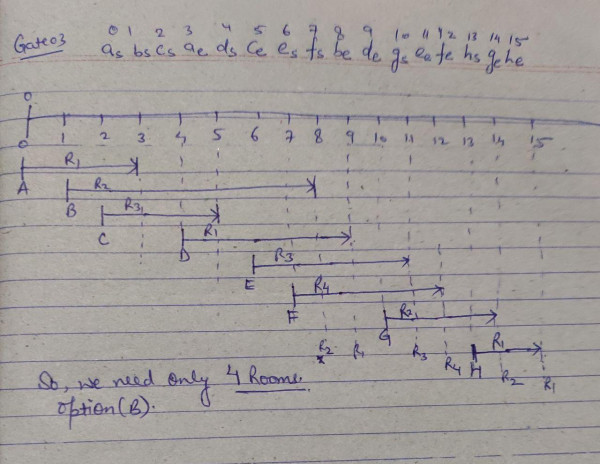 0 1 2 3 4 5 6 7 8 9 10 11 12 13 14 15
Gate03 as bs cs ae ds ce es fs be de gs ee fe hs ge he
0
0 1 2 3 4 5 6 7 8 9 10 11 12 13 14 15
R1
A
R2
B
R3
C
R1
D
R3
E
R4
F
R2
G
R1
H
R2 R1 R3 R4 R2 R1
So, we need only 4 Rooms.
option (B).